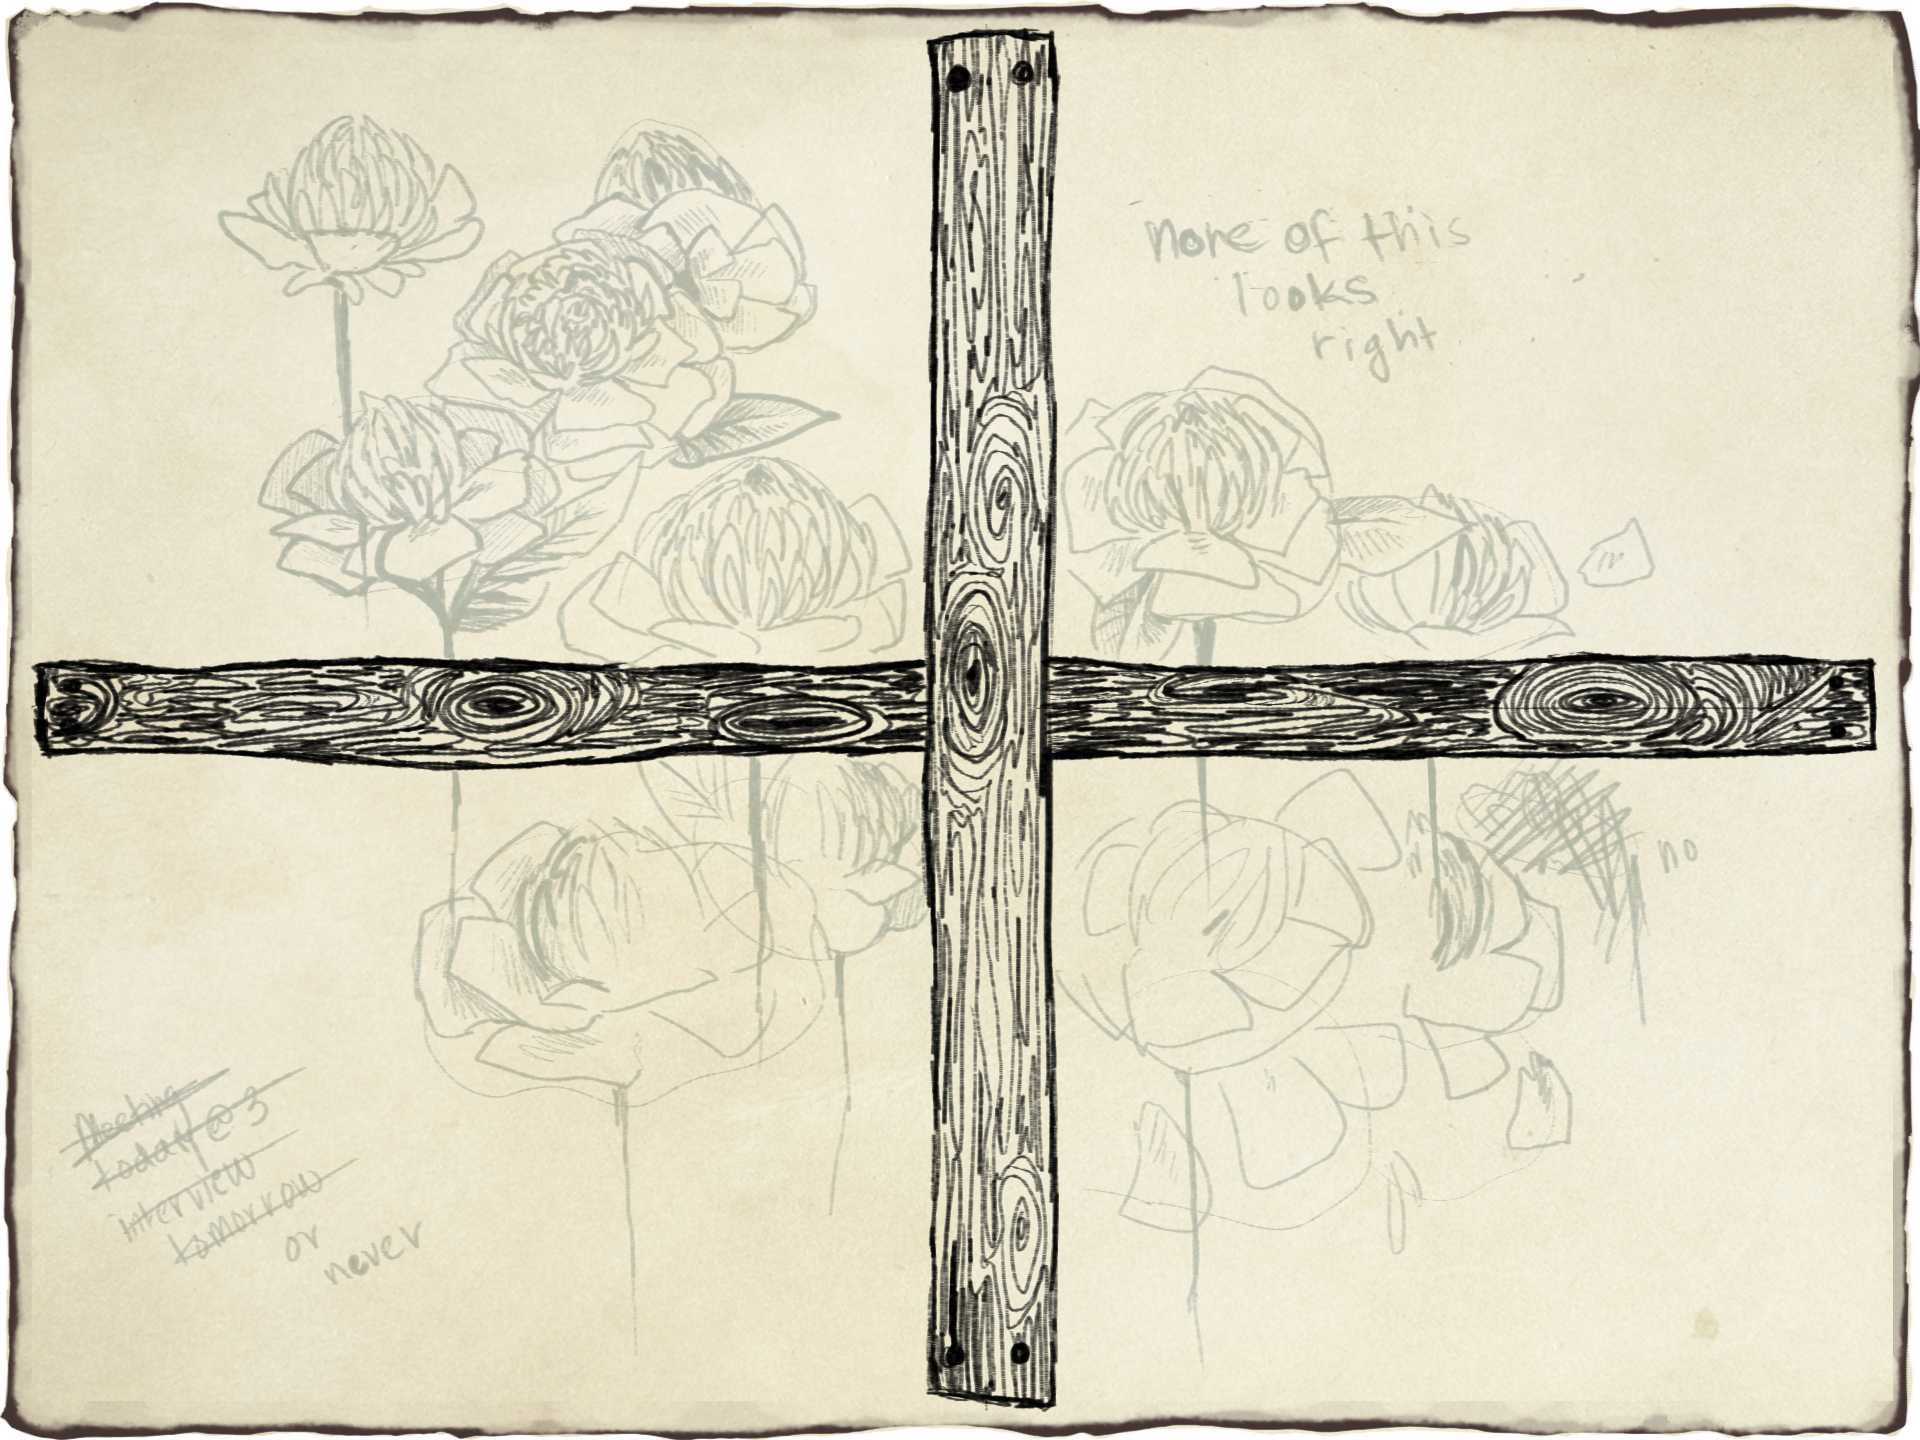 none of this
looks
right
no
Meeting
today @ 3
interview
tomorrow
or
never